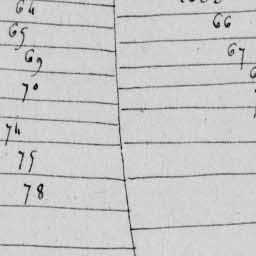 64
65
69
70
74
75
78
66
67